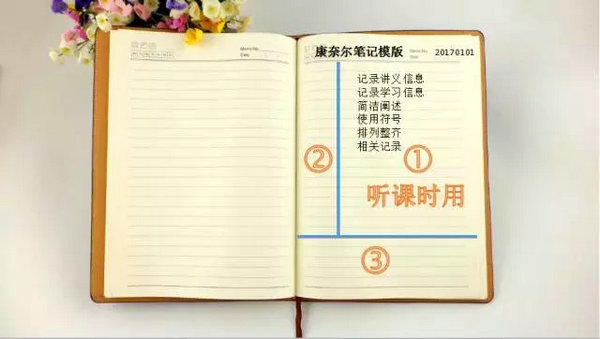 Memo No.
Date
康奈尔笔记模版
Memo No.
Date
20170101
记录讲义信息
记录学习信息
简洁阐述
使用符号
排列整齐
相关记录
②
①
听课时用
③